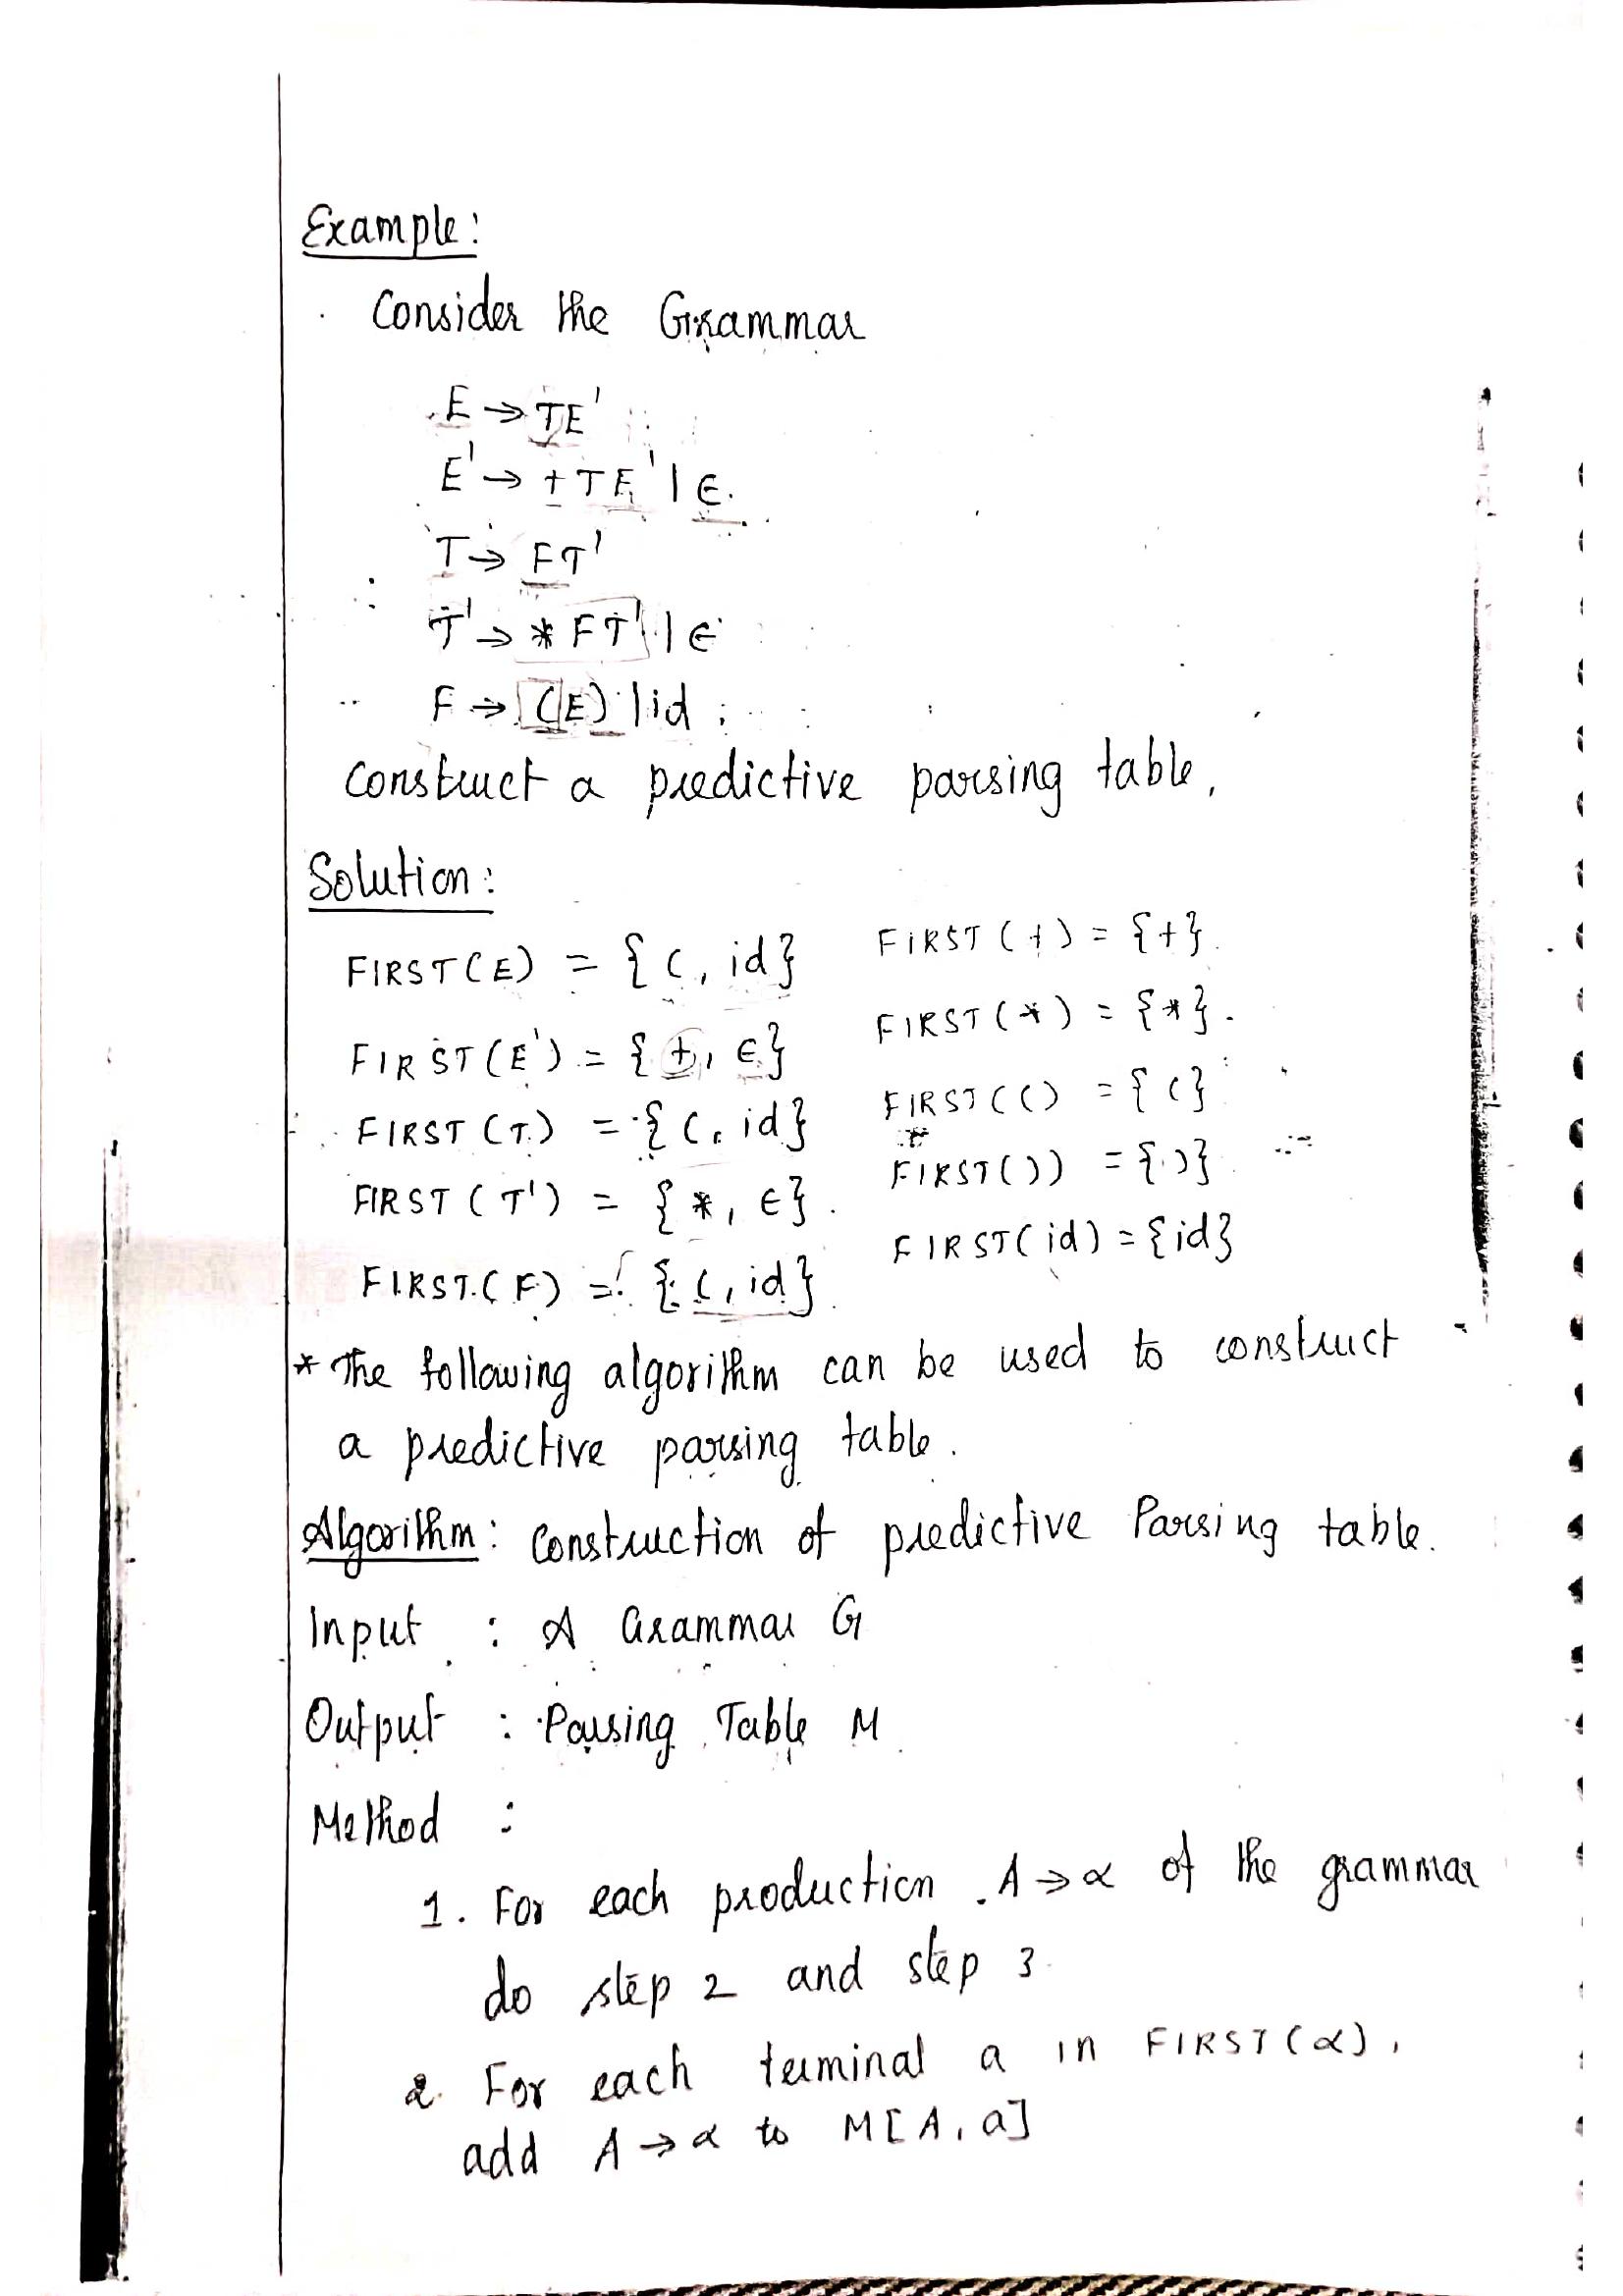 Example:
Consider the Grammar
E → TE'
E' → +TE' | ϵ.
T → FT'
T' → *FT' | ϵ
F → (E) | id
construct a predictive parsing table.
Solution:
FIRST(E) = { (, id} FIRST(+) = {+}.
FIRST(E') = { +, ϵ} FIRST(*) = {*}.
FIRST(T) = { (, id} FIRST(() = { (}
FIRST(T') = { *, ϵ}. FIRST()) = { )}
FIRST(F) = { (, id}. FIRST(id) = {id}
* The following algorithm can be used to construct
a predictive parsing table.
Algorithm: Construction of predictive Parsing table.
Input : A Grammar G
Output : Parsing Table M
Method :
1. For each production A → α of the grammar
do step 2 and step 3
2. For each terminal a in FIRST(α),
add A → α to M[A, a]